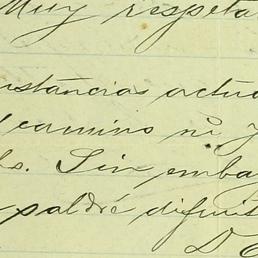 Muy respeta
nstancias actua
camino ni y
ls. Sin embag
saldré difinit
D